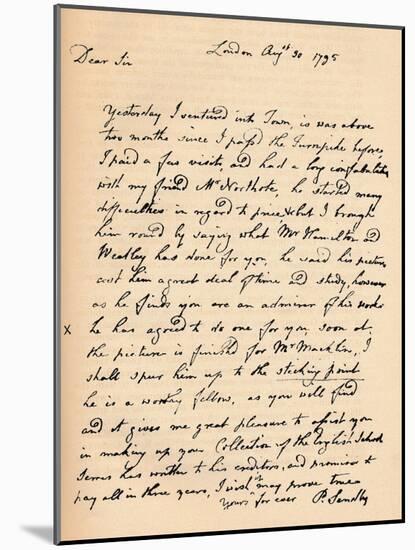 London Augst 30 1795
Dear Sir
Yesterday I ventured into Town, is was above
two months since I pass'd the Turnpike before,
I paid a few visits, and had a long confabulation
with my friend Mr Northcote, he started many
difficulties in regard to price but I brough
him round by saying what Mr Hamilton and
Weatley has done for you, he said his pictures
cost him a great deal of time and study, however
as he finds you are an admirer of his works
x he has agreed to do one for you, soon as
the picture is finished for Mr Macklin, I
shall spur him up to the sticking point
he is a worthy fellow, as you will find
and it gives me great pleasure to assist you
in making up your Collection of the English School
Serres has written to his creditors, and promises to
pay all in three years, I wish may prove true
Yours for ever P. Sandby